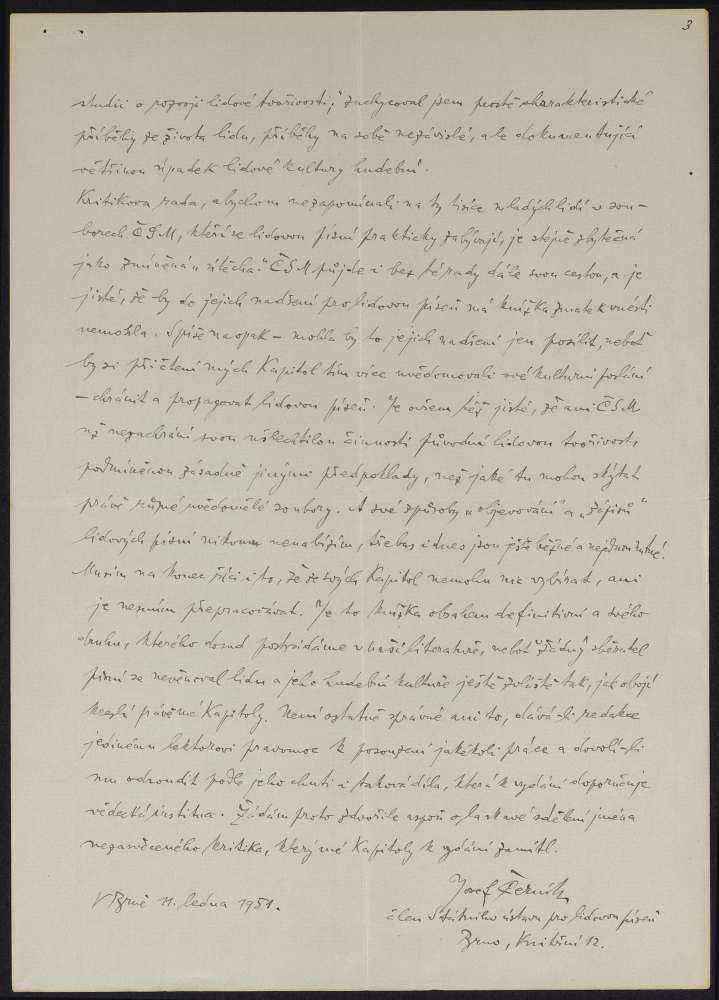 3
studii o rozvoji lidové tvořivosti," zachycoval jsem prostě charakteristické
příběhy ze života lidu, příběhy na sobě nezávislé, ale dokumentující
většinou úpadek lidové kultury hudební.
Kritikova rada, abychom nezapomínali na ty tisíce mladých lidí v sou-
borech ČSM, kteří se lidovou písní prakticky zabývají, je stejně zbytečná
jako zmíněná „útěcha." ČSM půjde i bez té rady dále svou cestou, a je
jisté, že by do jejich nadšení pro lidovou píseň má knížka zmatek vnésti
nemohla. Spíše naopak – mohla by to jejich nadšení jen posílit, neboť
by si při čtení mých Kapitol tím více uvědomovali své kulturní poslání
– chránit a propagovat lidovou píseň. Je ovšem též jisté, že ani ČSM
už nezachrání svou ušlechtilou činností původní lidovou tvořivost,
podmíněnou zásadně jinými předpoklady, než jaké tu mohou skýtat
právě různé uvědomělé soubory. A své způsoby „objevování" a „zápisů"
lidových písní nikomu nenabízím, třebas i dnes jsou ještě běžné a nutné.
Musím na konec říci i to, že ze svých Kapitol nemohu nic vybírat, ani
je nesmím přepracovávat. Je to knížka obsahem definitivní a svého
druhu, kterého dosud postrádáme v naší literatuře, neboť žádný sběratel
písní se nevěnoval lidu a jeho hudební kultuře ještě zvláště tak, jak obojí
kreslí právě mé Kapitoly. Není ostatně správné ani to, dává-li redakce
jedinému lektorovi pravomoc k posouzení jakékoli práce a dovolí-li
mu odsoudit podle jeho chuti i taková díla, která k vydání doporučuje
vědecká instituce. Žádám proto zdvořile aspoň o laskavé sdělení jména
nezasvěceného kritika, který mé Kapitoly k vydání zamítl.
Josef Černík,
V Brně 11. ledna 1951.
člen Státního ústavu pro lidovou píseň
Brno, Květní 12.